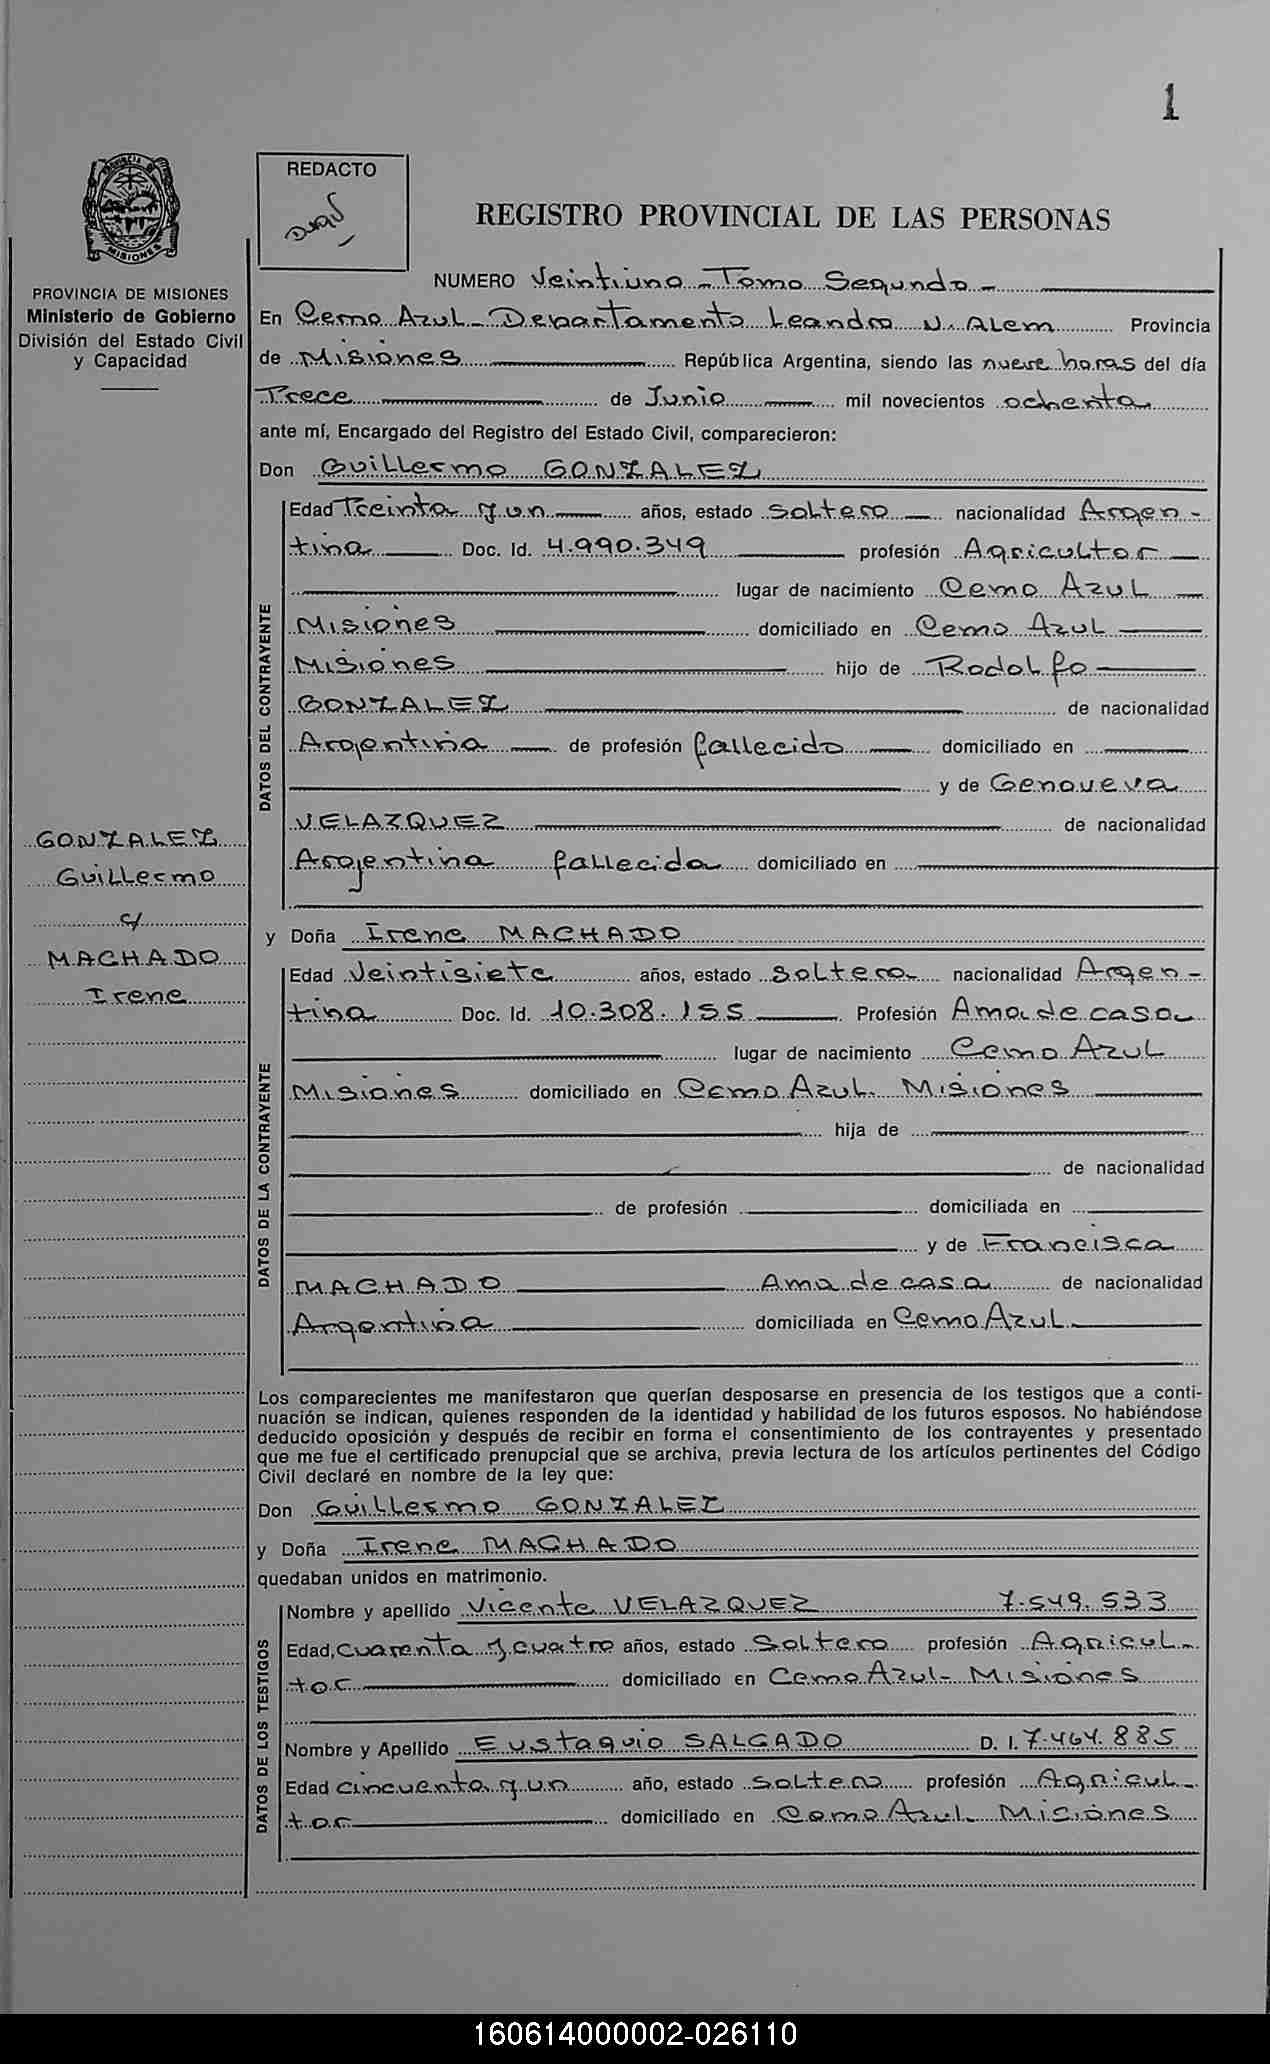 1
PROVINCIA DE
MISIONES
REDACTO
REGISTRO PROVINCIAL DE LAS PERSONAS
PROVINCIA DE MISIONES
Ministerio de Gobierno
División del Estado Civil
y Capacidad
NUMERO Veintiuno - Tomo Segundo -
En Cerro Azul - Departamento Leandro N. Alem Provincia
de Misiones República Argentina, siendo las nueve horas del día
Trece de Junio mil novecientos ochenta
ante mí, Encargado del Registro del Estado Civil, comparecieron:
Don Guillermo GONZALEZ
DATOS DEL CONTRAYENTE
Edad Treinta y un años, estado soltero nacionalidad Argen-
tina Doc. Id. 4.990.349 profesión Agricultor
lugar de nacimiento Cerro Azul
Misiones domiciliado en Cerro Azul
Misiones hijo de Rodolfo
GONZALEZ de nacionalidad
Argentina de profesión fallecido domiciliado en
y de Genoveva
VELAZQUEZ de nacionalidad
Argentina fallecida domiciliado en
GONZALEZ
Guillermo
c/
MACHADO
Irene
y Doña Irene MACHADO
DATOS DE LA CONTRAYENTE
Edad Veintisiete años, estado soltera nacionalidad Argen-
tina Doc. Id. 10.308.155 Profesión Ama de casa
lugar de nacimiento Cerro Azul
Misiones domiciliado en Cerro Azul. Misiones
hija de
de nacionalidad
de profesión domiciliada en
y de Francisca
MACHADO Ama de casa de nacionalidad
Argentina domiciliada en Cerro Azul
Los comparecientes me manifestaron que querían desposarse en presencia de los testigos que a conti-
nuación se indican, quienes responden de la identidad y habilidad de los futuros esposos. No habiéndose
deducido oposición y después de recibir en forma el consentimiento de los contrayentes y presentado
que me fue el certificado prenupcial que se archiva, previa lectura de los artículos pertinentes del Código
Civil declaré en nombre de la ley que:
Don Guillermo GONZALEZ
y Doña Irene MACHADO
quedaban unidos en matrimonio.
DATOS DE LOS TESTIGOS
Nombre y apellido Vicente VELAZQUEZ 7.549.533
Edad, Cuarenta y cuatro años, estado Soltero profesión Agricul-
tor domiciliado en Cerro Azul - Misiones
Nombre y Apellido Eustaquio SALGADO D. I. 7.464.885
Edad cincuenta y un año, estado soltero profesión Agricul-
tor domiciliado en Cerro Azul Misiones
160614000002-026110